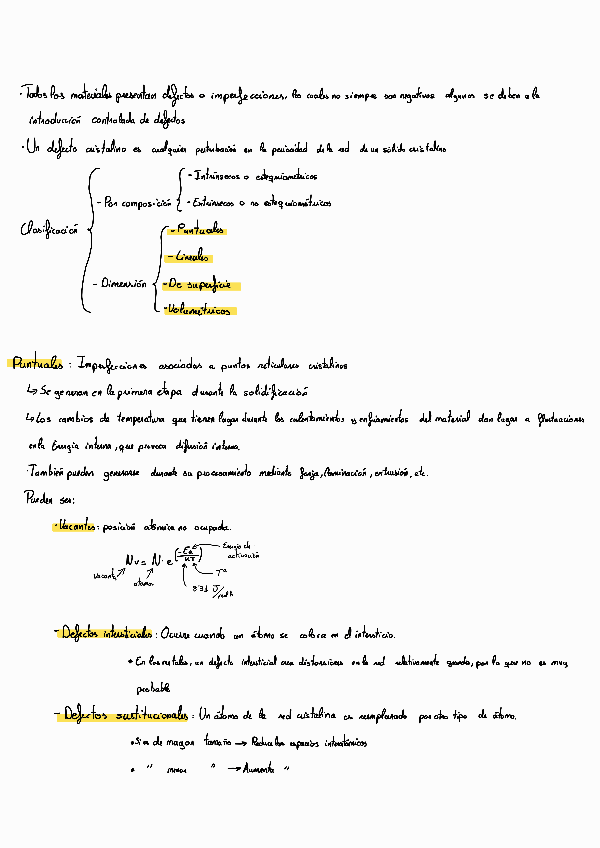 · Todos los materiales presentan defectos o imperfecciones, los cuales no siempre son negativos algunos se deben a la
introducción controlada de defectos
· Un defecto cristalino es cualquier perturbación en la periocidad de la red de un sólido cristalino
- Intrínsecos o estequiométricos
- Por composición
- Extrínsecos o no estequiométricos
Clasificación
- Puntuales
- Lineales
- Dimensión
- De superficie
- Volumétricos
Puntuales : Imperfecciones asociadas a puntos reticulares cristalinos
↳ Se generan en la primera etapa durante la solidificación
↳ Los cambios de temperatura que tienen lugar durante los calentamientos y enfriamientos del material dan lugar a fluctuaciones
en la Energía interna, que provoca difusión interna.
· También pueden generarse durante su procesamiento mediante forja, laminación, extrusión, etc.
Pueden ser:
· Vacantes: posición atómica no ocupada.
Energía de
activación
Nv = N · e^(-Ea/KT)
Vacante
átomos
Tª
8'31 J/mol k
- Defectos intersticiales : Ocurre cuando un átomo se coloca en el intersticio.
• En los metales, un defecto intersticial crea distorsiones en la red relativamente grande, por lo que no es muy
probable
- Defectos sustitucionales : Un átomo de la red cristalina es reemplazado por otro tipo de átomo.
• Si es de mayor tamaño → Reduce los espacios interatómicos
• " " menor " → Aumenta "